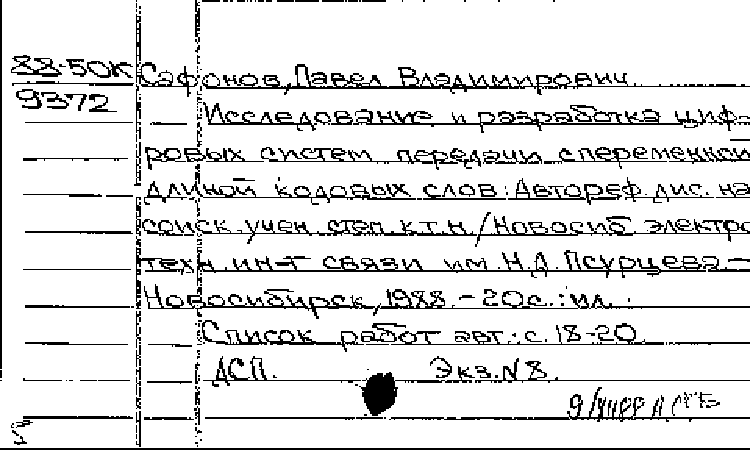 88-50К Сафонов, Павел Владимирович.
9372 Исследование и разработка циф-
ровых систем передачи с переменной
длиной кодовых слов: Автореф. дис. на
соиск. учен. степ. к.т.н. / Новосиб. электро-
техн. ин-т связи им. Н.Д. Псурцева. -
Новосибирск, 1988. - 20 с.: ил.
Список работ авт.: с. 18-20
ДСП. Экз. N 8.